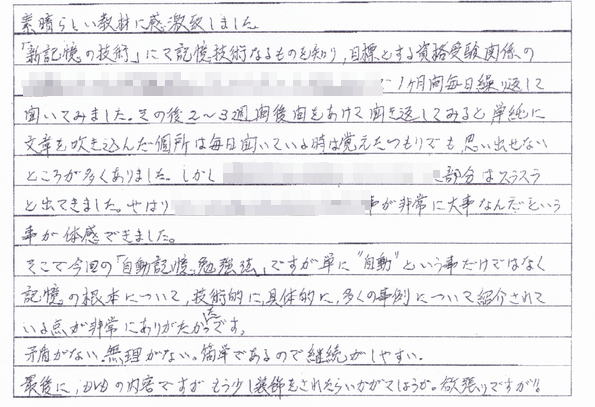 素晴らしい教材に感激致しました
「新記憶の技術」にて記憶技術なるものを知り、目標とする資格受験関係の
に1ヶ月間毎日繰り返して
聞いてみました。その後2〜3週間後間をあけて聞き返してみると単純に
文章を吹き込んだ個所は毎日聞いている時は覚えたつもりでも、思い出せない
ところが多くありました。しかし 部分はスラスラ
と出てきました。やはり 事が非常に大事なんだという
事が体感できました。
そこで今回の「自動記憶勉強法」ですが単に"自動"という事だけではなく
記憶の根本について、技術的に、具体的に、多くの事例について紹介されて
いる点が非常にありがたい点です。
矛盾がない、無理がない。簡単であるので継続がしやすい。
最後に、DVDの内容ですがもう少し装飾をされたらいかがでしょうか。欲張りですが!!